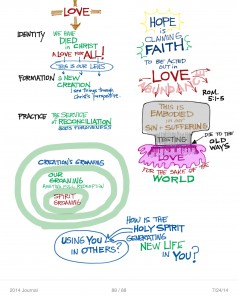 LOVE
IDENTITY
WE HAVE
DIED
IN CHRIST
A LOVE FOR ALL!
THIS IS OUR LENS
FORMATION
IS NEW
CREATION
see things through
Christ's perspective.
PRACTICE
THE SERVICE OF
RECONCILIATION
GOD'S FORGIVENESS
CREATION'S GROANING
OUR
GROANING
SPIRIT
GROANING
HOPE
IS
CLAIMING
FAITH
TO BE ACTED
OUT IN
LOVE
ROM.
5:1-5
THIS IS
EMBODIED
IN OUR
SIN + SUFFERING
TESTING
DIE TO THE
OLD
WAYS
LOVE
FOR THE SAKE OF THE
WORLD
HOW IS THE
HOLY SPIRIT
GENERATING
NEW LIFE
IN YOU?
USING YOU
IN OTHERS?
2014 Journal
88 / 98
7/24/14